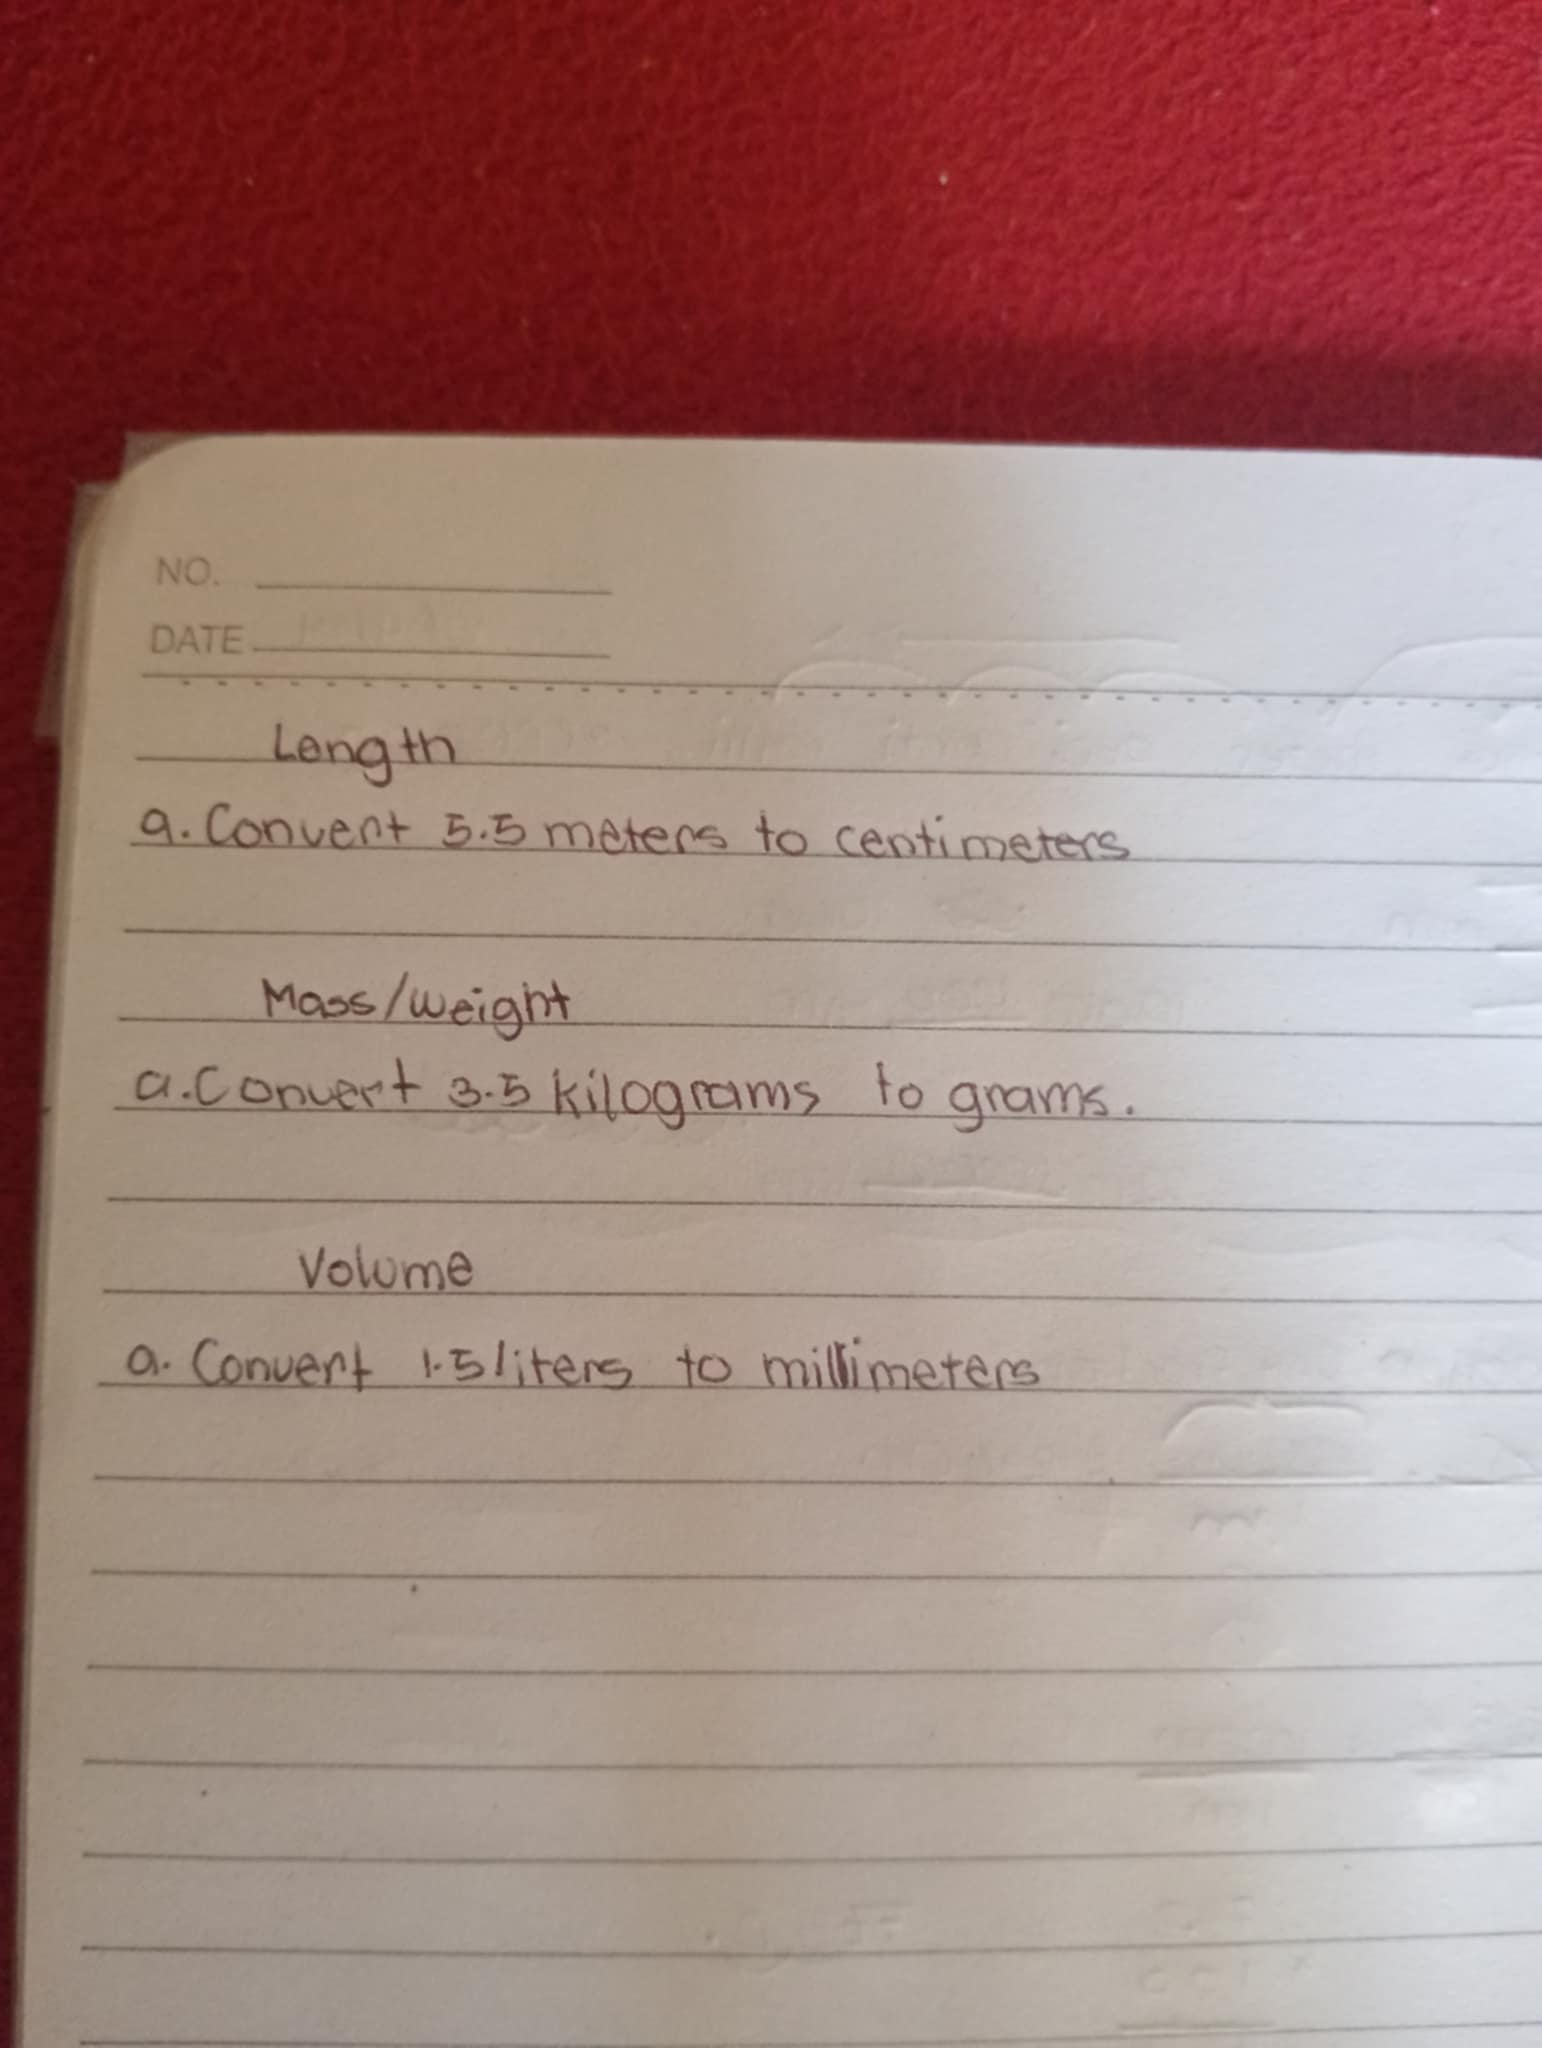 NO.
DATE
Length
a. Convert 5.5 meters to centimeters
Mass/weight
a. Convert 3.5 kilograms to grams.
Volume
a. Convert 1.5 liters to millimeters